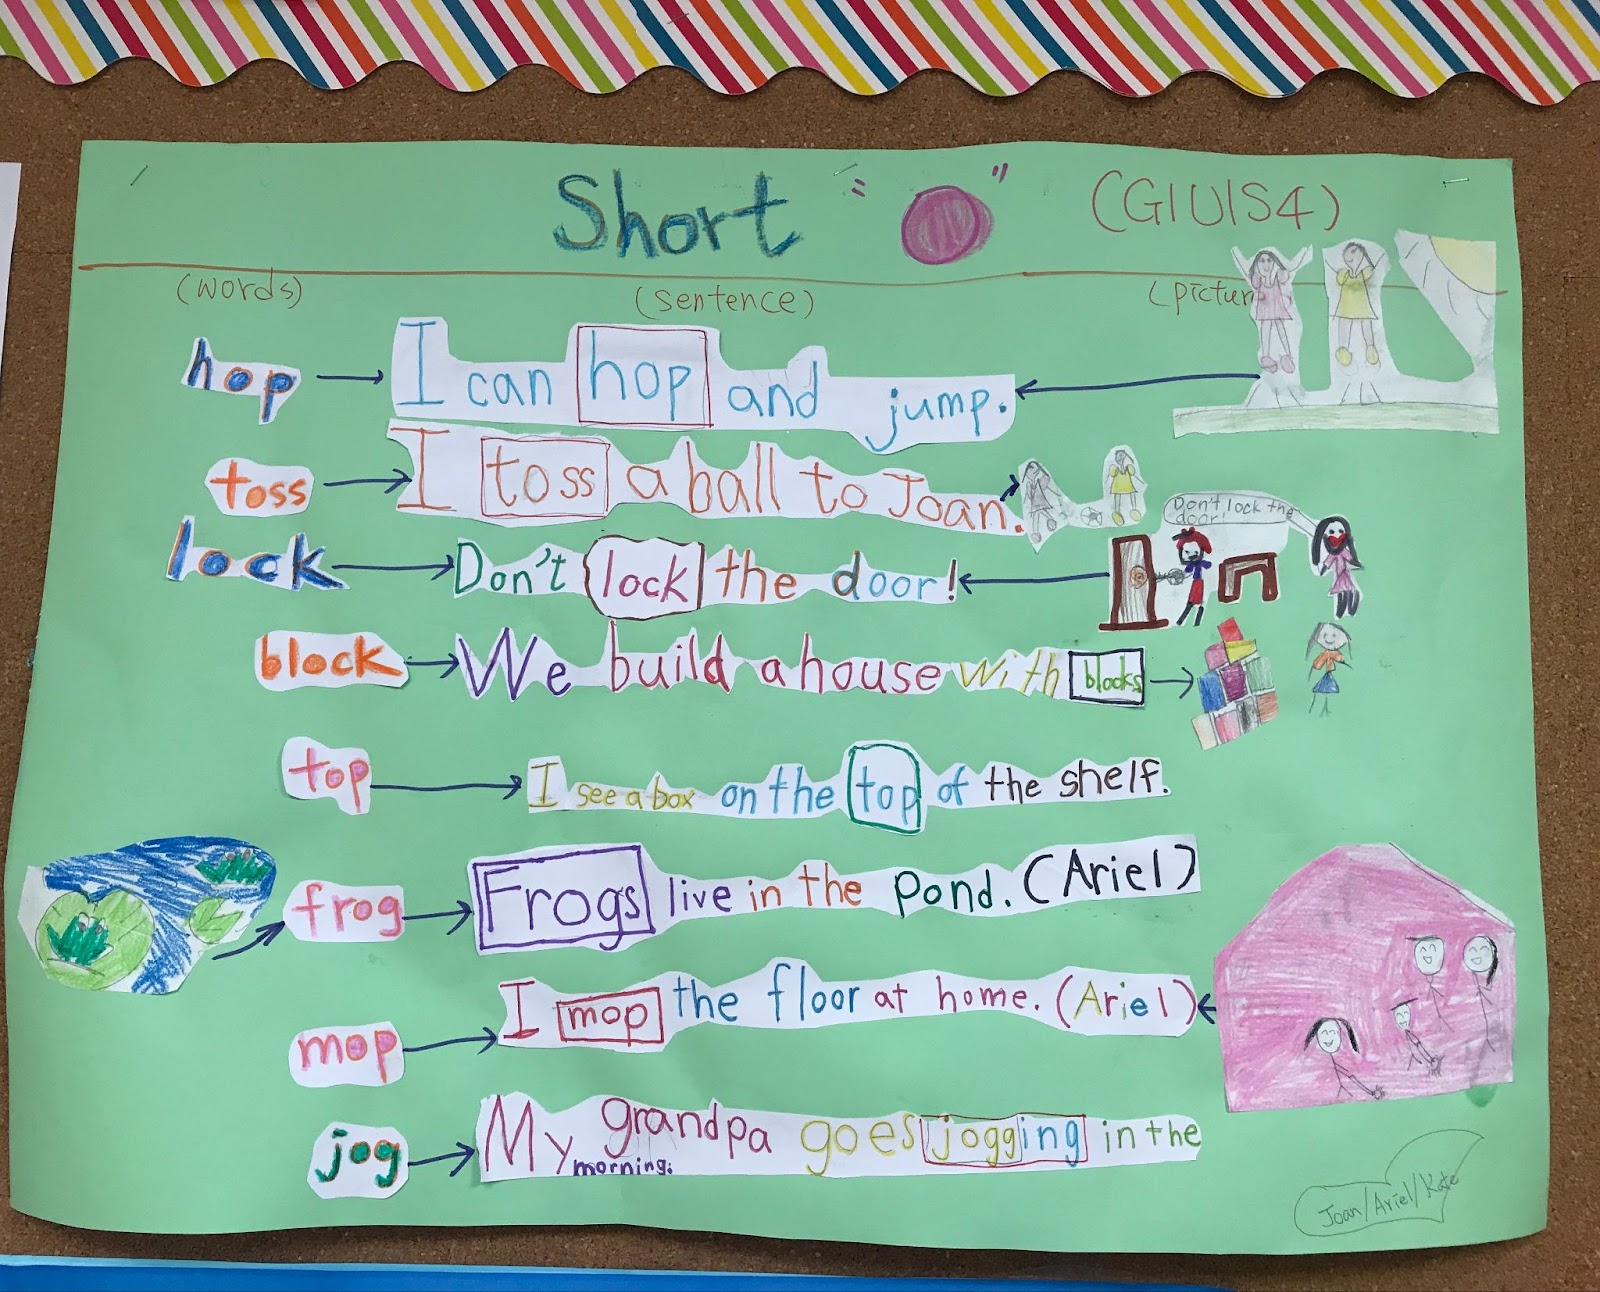 Short "O" (G1U1S4)
(words) (sentence) (pictur
hop I can hop and jump.
toss I toss a ball to Joan.
Don't lock the
door!
lock Don't lock the door!
block We build a house with blocks
top I see a box on the top of the shelf.
frog Frogs live in the pond. (Ariel)
mop I mop the floor at home. (Ariel)
jog My grandpa goes jogging in the
morning.
Joan/Ariel/Kate